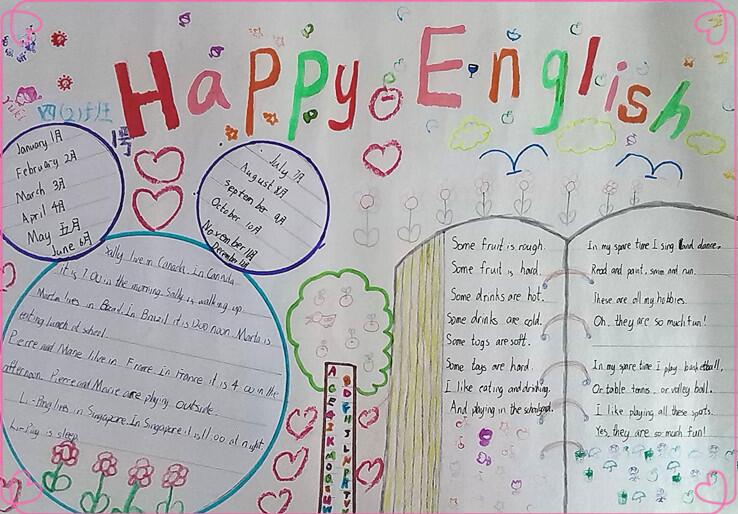 Happy English
四(2)班
January 1月
February 2月
March 3月
April 4月
May 五月
June 6月
July 7月
August 8月
September 9月
October 10月
November 11月
December 12月
Sally live in Canada. In Canada
it is 7.00 in the morning. Sally is walking up.
Marta lives in Brazil. In Brazil it is 1200 noon. Marta is
eating lunch at school.
Pierre and Marie live in France. In France it is 4:00 in the
afternoon. Pierre and Marie are playing outside.
Li-Ping lives in Singapore. In Singapore it is 11:00 at night.
Li-Ping is sleep
Some fruit is rough.
Some fruit is hard.
Some drinks are hot.
Some drinks are cold.
Some togs are soft.
Some toys are hard.
I like eating and drinking.
And playing in the schoolyard.
In my spare time I sing and dance.
Read and paint, swim and run.
These are all my hobbies.
Oh, they are so much fun!
In my spare time I play basketball,
Or table tennis, or volley ball.
I like playing all these sports.
Yes, they are so much fun!